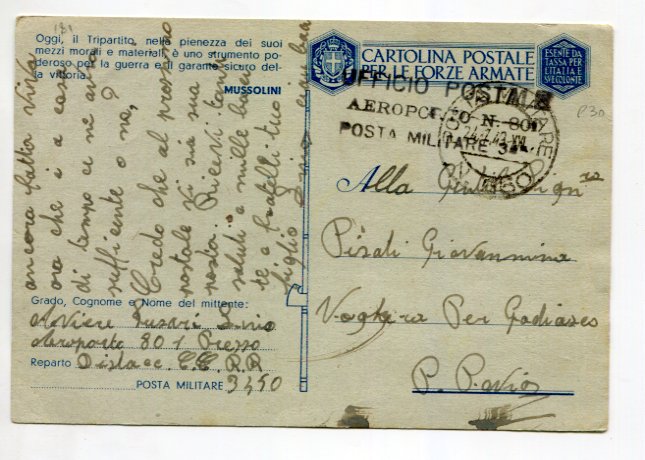 131
Oggi, il Tripartito, nella pienezza dei suoi
mezzi morali e materiali, è uno strumento po-
deroso per la guerra e il garante sicuro del-
la vittoria.
MUSSOLINI
ancora fatto vista
ora che è a casa
di tempo ce ne avrà
sufficiente o no,?
Credo che al prossimo
postale vi sia sua
posta. Ricevi tanti
saluti e mille baci
te e fratelli tuo
figlio
Grado, Cognome e Nome del mittente:
Aviere
Aeroporto 801 Presso
Reparto Distacc. CC. RR
POSTA MILITARE 3450
CARTOLINA POSTALE
PER LE FORZE ARMATE
ESENTE DA
TASSA PER
L'ITALIA E
SVEZIONE
P30
UFFICIO POSTALE
AEROPORTO N. 801
POSTA MILITARE 34
Alla
Pisati Giovannina
Voghera Per Godiasco
P. Pavia